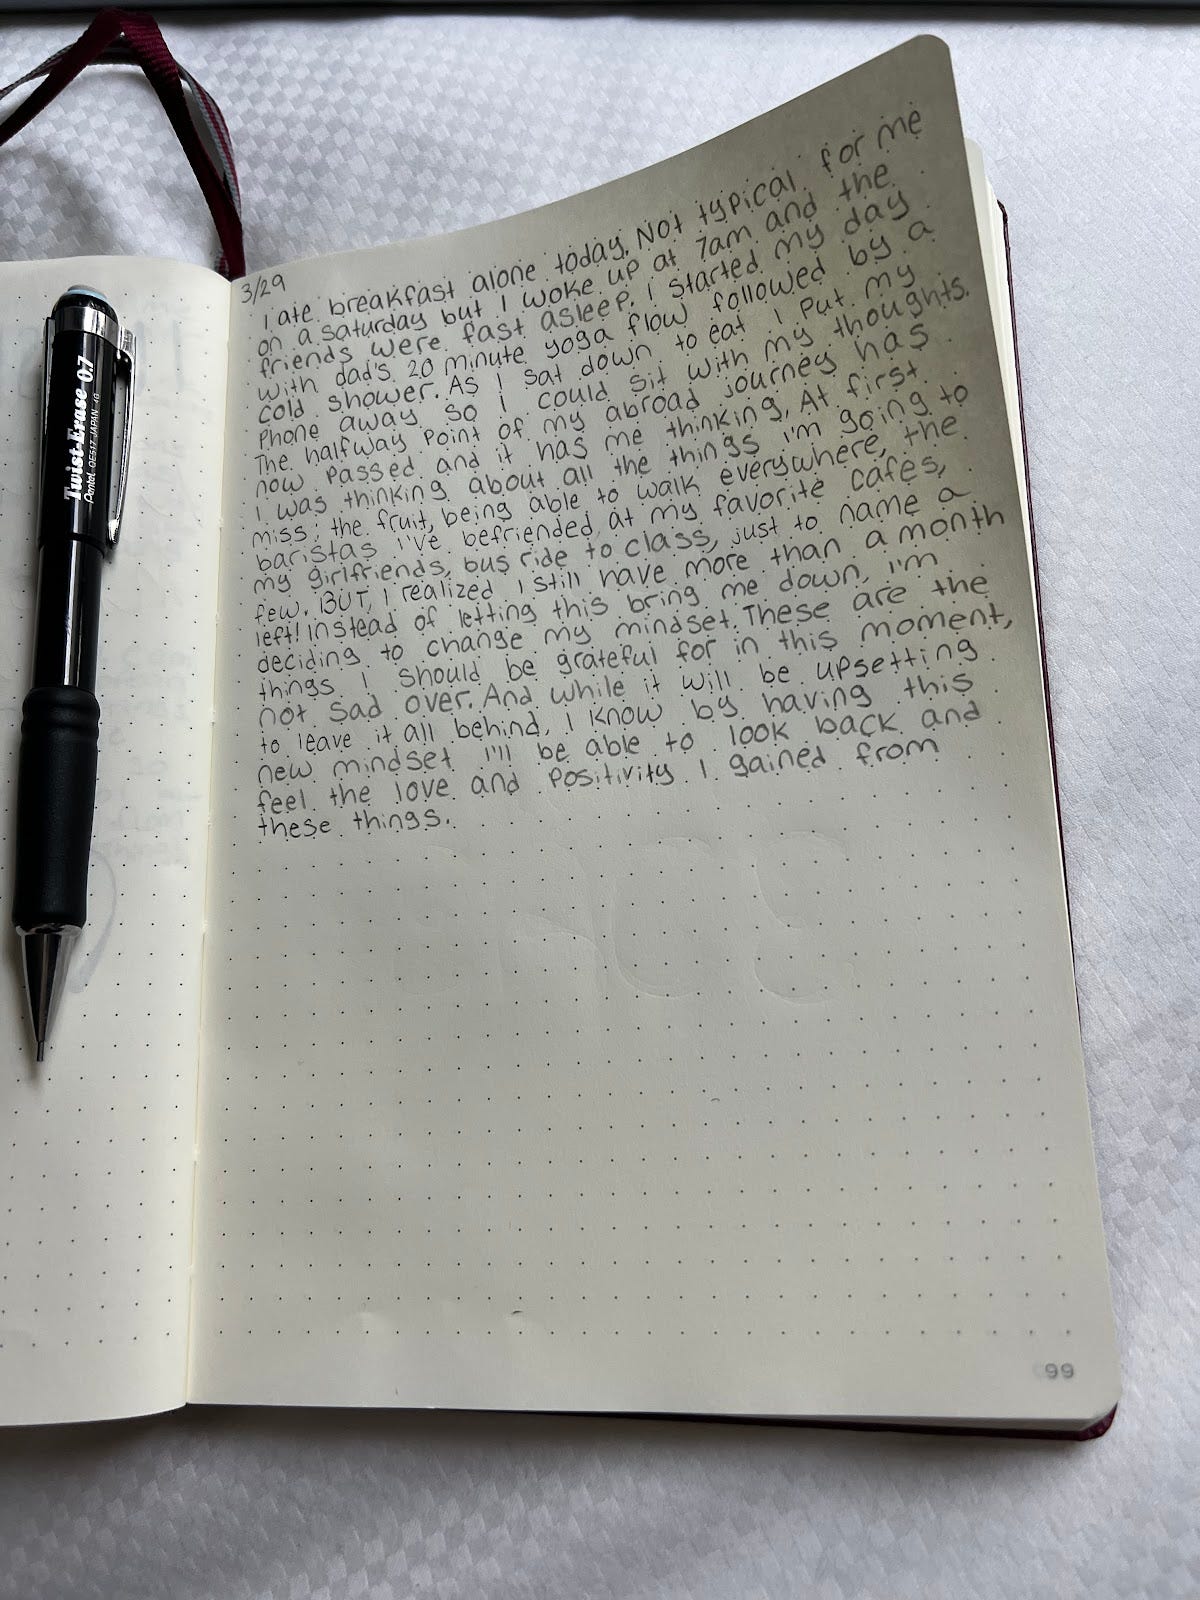 Twist-Erase 0.7
Pentel QE517 JAPAN
3/29
I ate breakfast alone today. Not typical for me
on a saturday but I woke up at 7am and the
friends were fast asleep. I started my day
with dad's 20 minute yoga flow followed by a
cold shower. As I sat down to eat I put my
phone away so I could sit with my thoughts.
The halfway point of my abroad journey has
now passed and it has me thinking. At first
I was thinking about all the things i'm going to
miss: the fruit, being able to walk everywhere, the
baristas I've befriended at my favorite cafes,
my girlfriends, bus ride to class, just to name a
few. BUT, I realized I still have more than a month
left! Instead of letting this bring me down, i'm
deciding to change my mindset. These are the
things I should be grateful for in this moment,
not sad over. And while it will be upsetting
to leave it all behind, I know by having this
new mindset I'll be able to look back and
feel the love and positivity I gained from
these things.
99